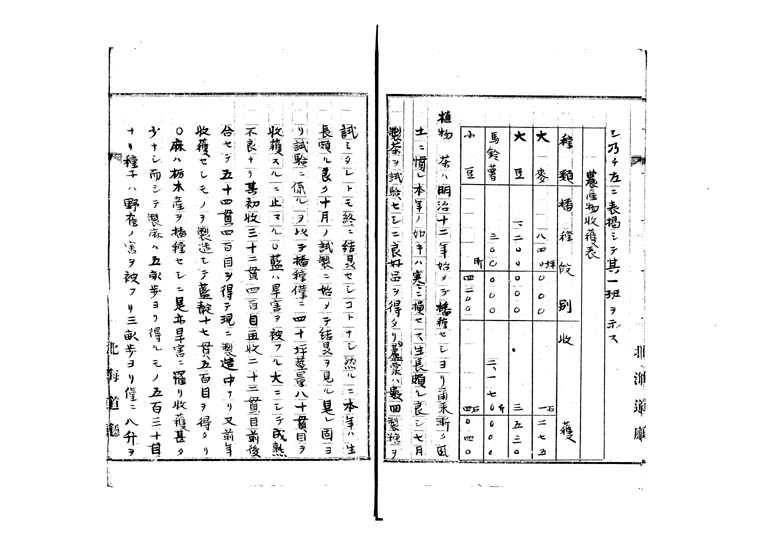 シ乃チ左ニ表掲シテ其一班ヲ示ス
農産物収穫表
種類 播種段別 収穫
大麦 八四〇坪 〇〇〇 一石二七五
大豆 一、二〇〇 〇〇〇 三五三〇
馬鈴薯 三〇〇 〇〇〇 三、一七〇斤 〇〇〇
小豆 四二〇〇 四石〇四〇
植物 茶ハ明治十二年始メテ播種セシヨリ爾来漸々風
土ニ慣レ本年ノ如キハ寒ニ損セス生長頗ル良シ七月
製茶ヲ試験セシニ良好品ヲ得タリ罌粟ハ数回製種ヲ
試ミタレトモ終ニ結晃セシコトナシ然ルニ本年ハ生
長頗ル良ク十月ノ試製ニ始メテ結晃ヲ見ル是レ固ヨ
リ試験ニ係ルヲ以テ播種僅ニ四十坪茎量八十貫目ヲ
収穫スルニ止マル〇藍ハ旱害ヲ被フル大ニシテ成熟
不良ナリ其初収三十二貫四百目再収二十三貫目前後
合セテ五十四貫四百目ヲ得テ現ニ製造中ナリ又前年
収穫セシモノヲ製造シテ藍靛十七貫五百目ヲ得タリ
〇麻ハ栃木産ヲ播種セシニ是亦旱害ニ罹リ収穫甚タ
少ナシ而シテ製麻ハ五畝歩ヨリ得ルモノ五百三十目
ナリ種子ハ野雀ノ害ヲ被フリ三畝歩ヨリ僅ニ八升ヲ
北海道庁
北海道庁